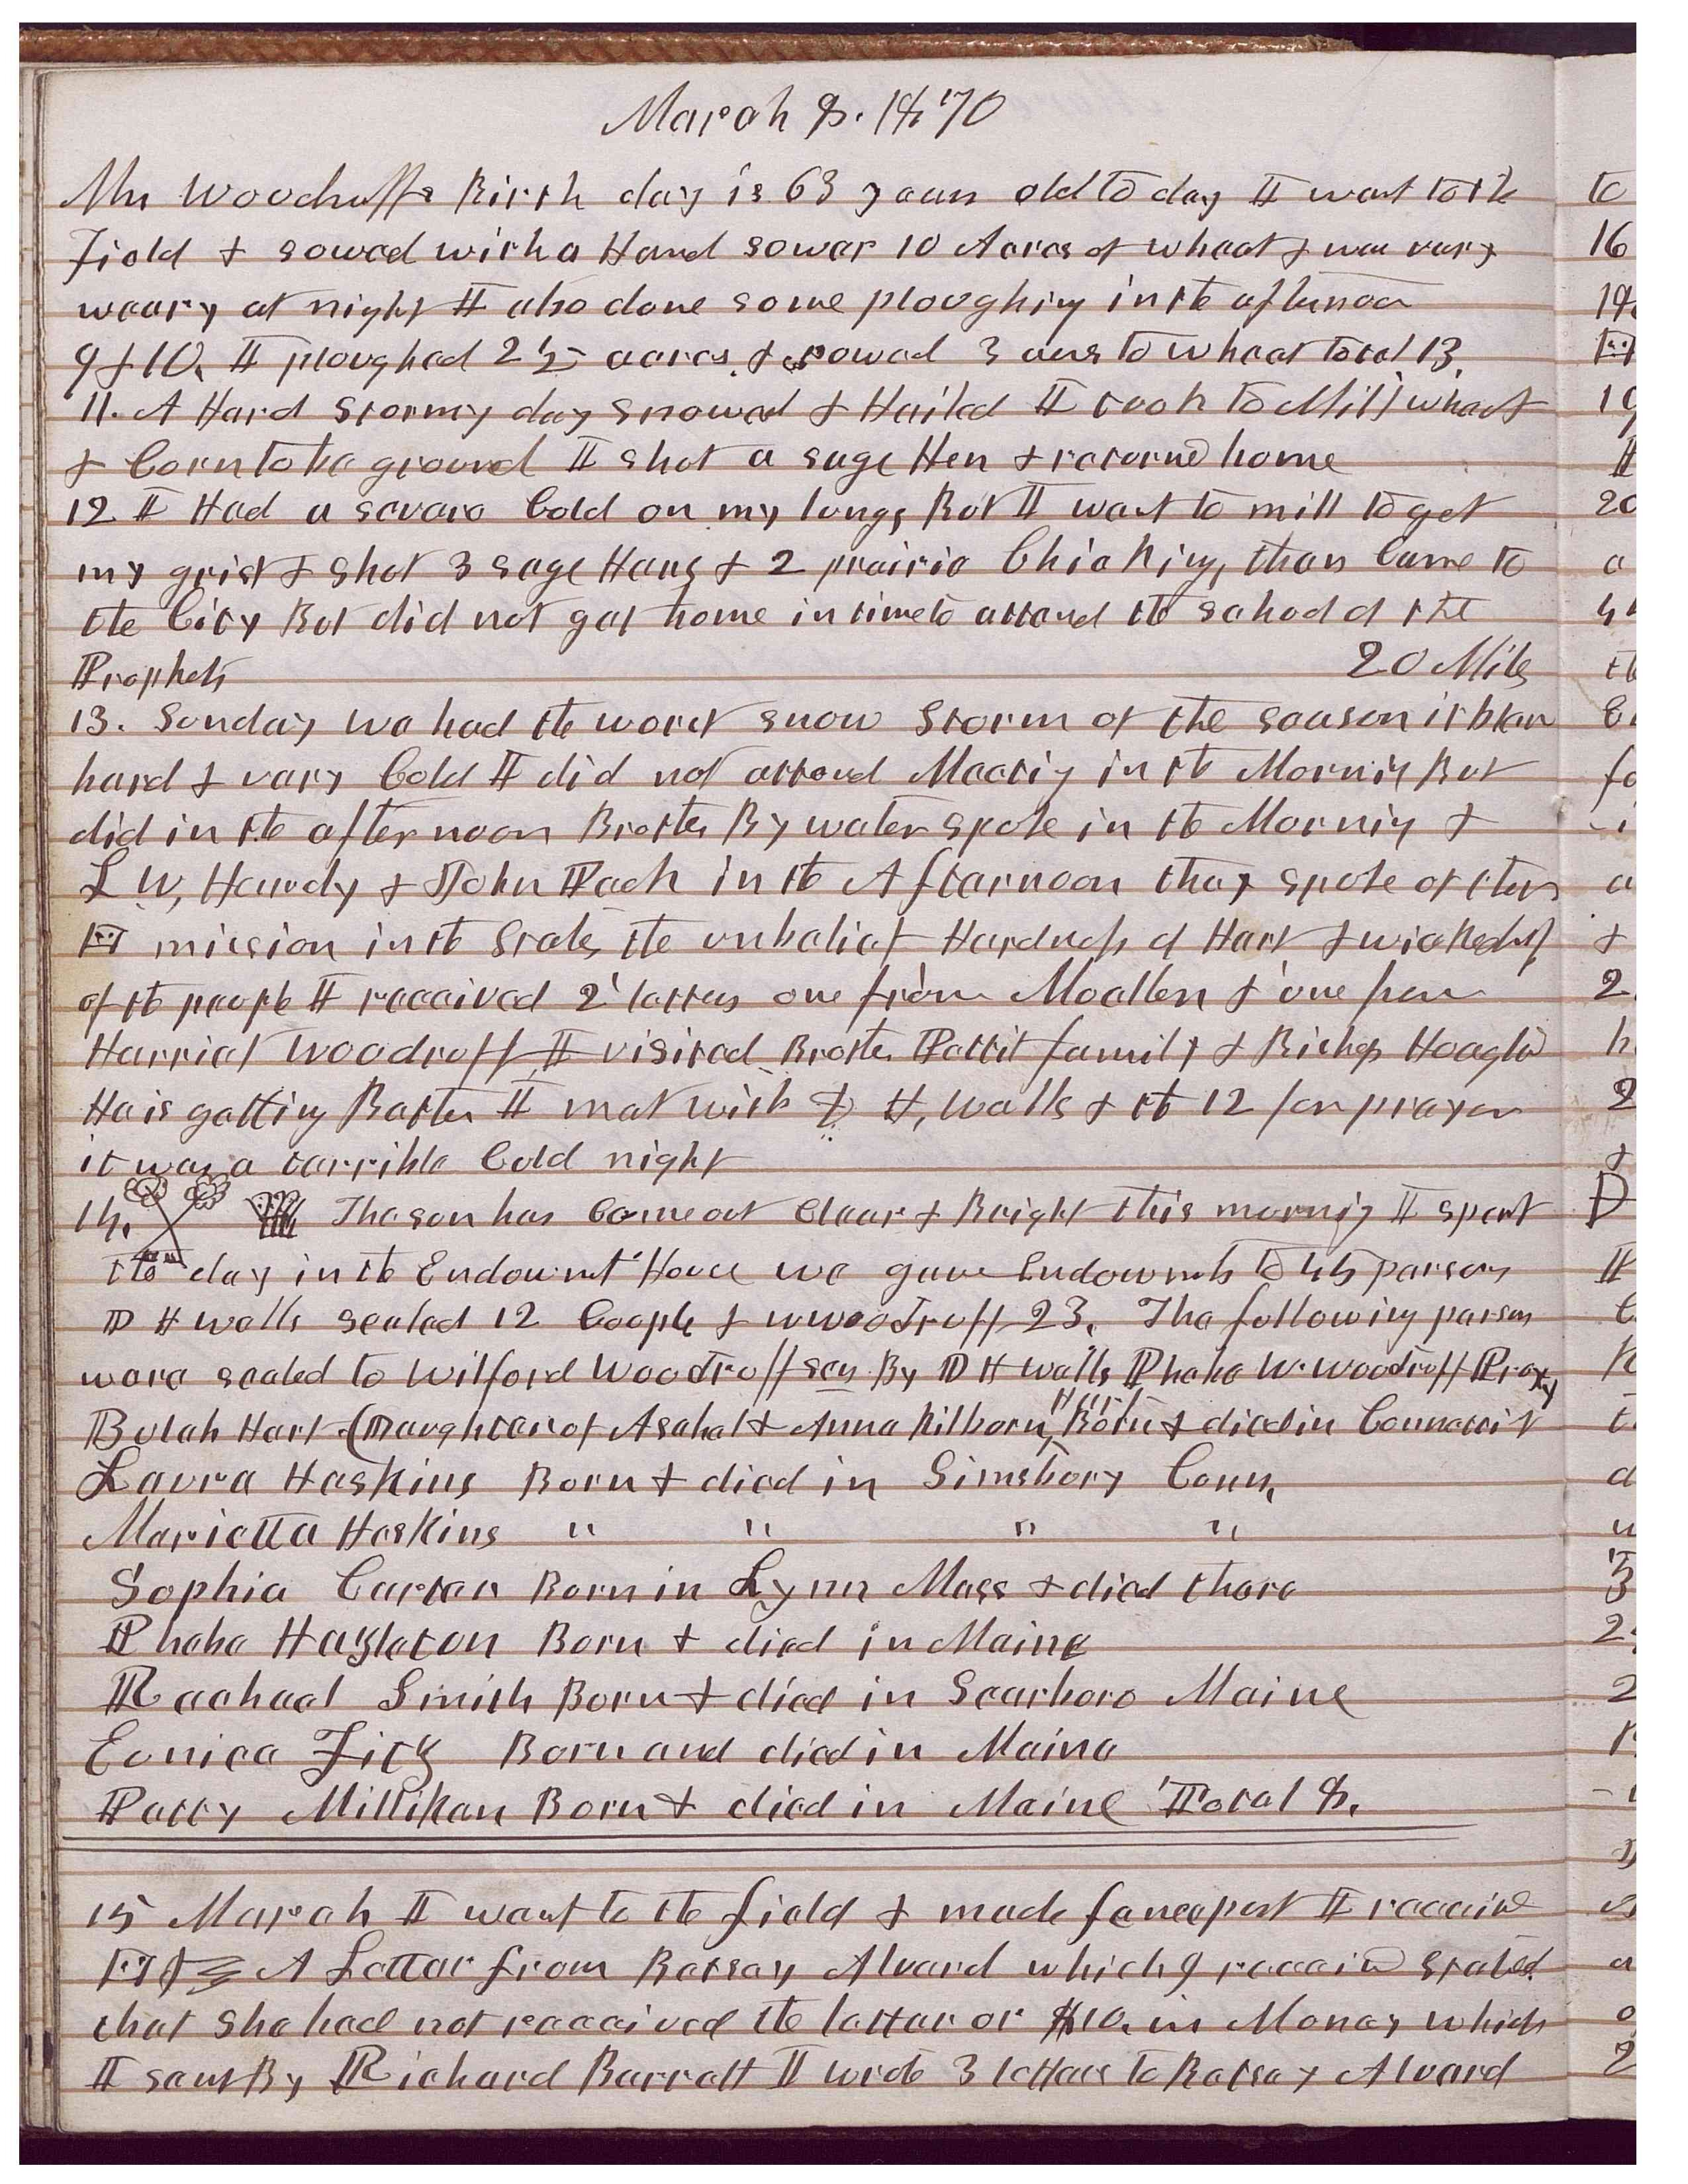 March 8. 1870
Mrs Woodruffs Birth day is 63 years old to day I went to the
Field & sowed with a Hand sower 10 Acres of wheat & was very
weary at night I also done some ploughing in the afternoon
9 & 10. I ploughed 2 1/2 acres. & sowed 3 acres to wheat total 13.
11. A Hard stormy day snowed & Hailed I took to Mill wheat
& Corn to be ground I shot a sage Hen & returned home
12 I Had a severe Cold on my lungs But I went to mill to get
my grist & shot 3 sage Hens & 2 prairie Chickings, then Came to
the City But did not get home in time to attend the school of the
Prophets 20 Miles
13. Sunday we had the worst snow Storm of the season it blew
hard & very Cold I did not attend Meeting in the Mornig But
did in the after noon Brother By water spoke in the Mornig &
L W, Hardy & John Pack in the Afternoon they spoke of their
mission in the States the unbelief Hardness of Hart & wickedness
of the people I received 2 letters one from Moellen & one from
Harriet Woodruff, I visited Brother Pettit family & Bishop Hoagld
He is getting Better I met with D H, Wells & the 12 for prayer
it was a terrible Cold night
14. The sun has Come out Clear & Bright this mornig I spent
the day in the Endowmt House we gave Endowmets to 45 persons
D H Wells sealed 12 Couple & W Woodruff 23. The following person
were sealed to Wilford Woodruff sen By D H Wells Phebe W. Woodruff Proxy
Bulah Hart (Daughter of Asahel & Anna Kilborn Hart, Born & died in Connecticut
Laura Haskins Born & died in Simsbory Conn,
Marietta Haskins " " " "
Sophia Carter Born in Lynn Mass & died there
Phebe Hagleton Born & died in Maine
Rachael Smith Born & died in Scarboro Maine
Eunice Fick Born and died in Maine
Patty Millikan Born & died in Maine Total 8.
15 March I went to the field & made fencepost I received
A Letter from Betsey Alvard which I received stated
that she had not received the letter or $10. in Money which
I sent By Richard Barratt I wrote 3 letters to Betsey Alvord